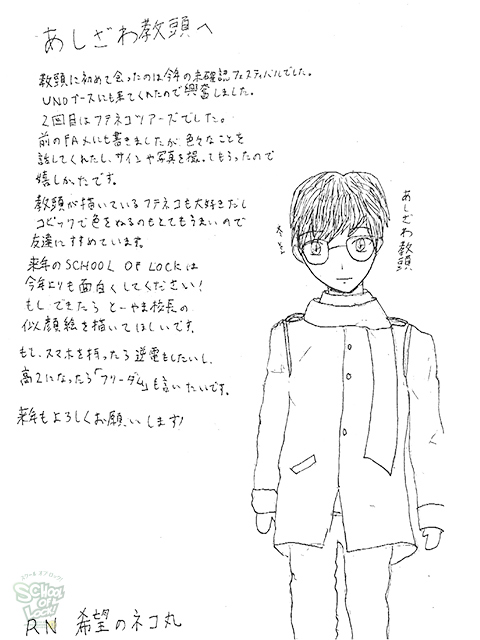 あしざわ教頭へ
教頭に初めて会ったのは今年の未確認フェスティバルでした。
UNOブースにも来てくれたので興奮しました。
2回目はフテネコツアーズでした。
前のFAXにも書きましたが色々なことを
話してくれたし、サインや写真を撮ってもらったので
嬉しかったです。
教頭が描いているフテネコも大好きだし
コピックで色をぬるのもとてもうまいので
友達にすすめています。
来年のSCHOOL OF LOCKは
今年よりも面白くしてください!
もしできたら とーやま校長の
似顔絵を描いてほしいです。
もし、スマホを持ったら逆電もしたいし、
高2になったら「フリーダム」も言いたいです。
来年もよろしくお願いします!
あしざわ教頭
SCHOOL OF LOCK!
RN 希望のネコ丸